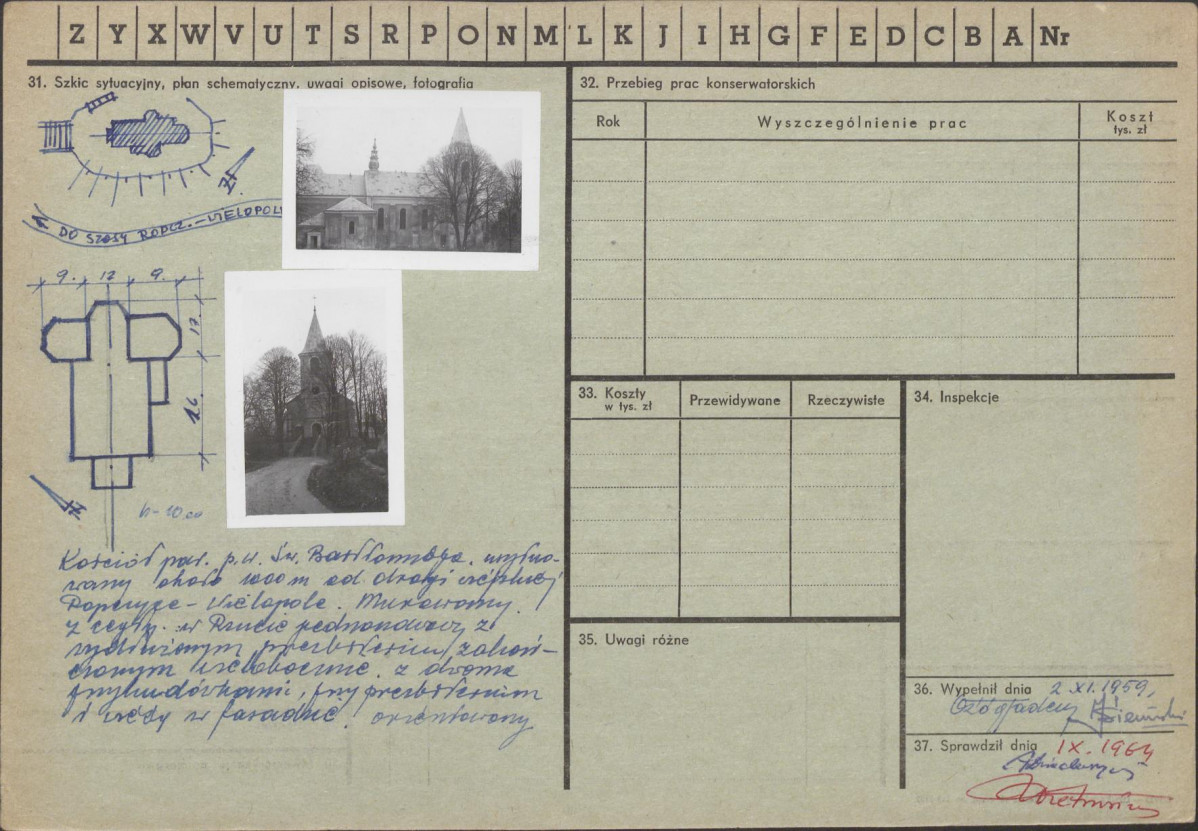 Z Y X W V U T S R P O N M L K J I H G F E D C B A Nr
31. Szkic sytuacyjny, plan schematyczny, uwagi opisowe, fotografia
DO SZOSY ROPCZ.-WIELOPOLE
9. 12 9.
17.
26.
h-10.00
Kościół par. p.w. Św. Bartłomieja, usytuo-
wany około 1000 m od drogi
Ropczyce - Wielopole. Murowany.
z cegły. w Rzucie jednonawowy z
wydłużonym prezbiterium zakoń-
czonym wielobocznie. z dwoma
przybudówkami, przy prezbiterium
i wieży w fasadzie. orientowany
32. Przebieg prac konserwatorskich
Rok
Wyszczególnienie prac
Koszt
tys. zł
33. Koszty
w tys. zł
Przewidywane
Rzeczywiste
34. Inspekcje
35. Uwagi różne
36. Wypełnił dnia 2.XI.1959,
37. Sprawdził dnia IX.1964